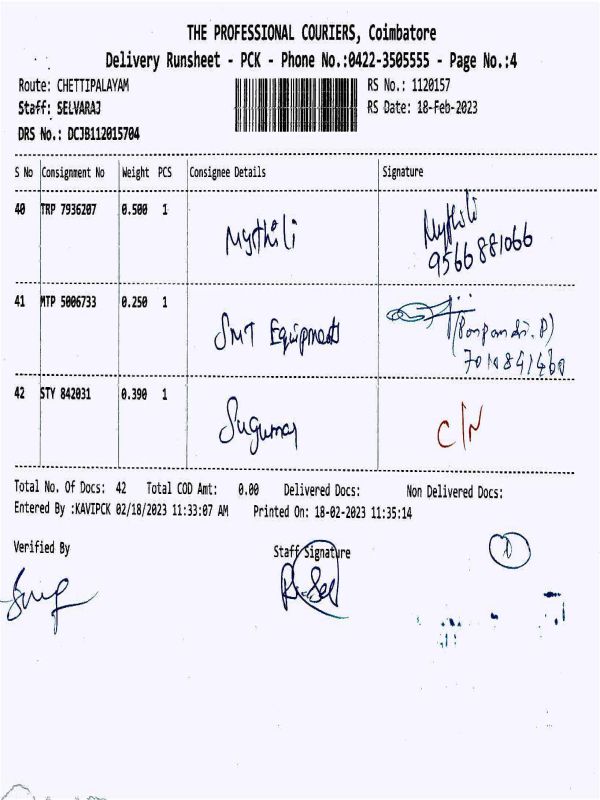 THE PROFESSIONAL COURIERS, Coimbatore
Delivery Runsheet - PCK - Phone No.:0422-3505555 - Page No.:4
Route: CHETTIPALAYAM RS No.: 1120157
Staff: SELVARAJ RS Date: 18-Feb-2023
DRS No.: DCJB112015704
S No Consignment No Weight PCS Consignee Details Signature
40 TRP 7936207 0.500 1 Mythili Mythili
9566881066
41 MTP 5006733 0.250 1 SMT Equipments
(Ponpandi.P)
7010841460
42 STY 842031 0.390 1 Sugumar C/N
Total No. Of Docs: 42 Total COD Amt: 0.00 Delivered Docs: Non Delivered Docs:
Entered By :KAVIPCK 02/18/2023 11:33:07 AM Printed On: 18-02-2023 11:35:14
Verified By Staff Signature